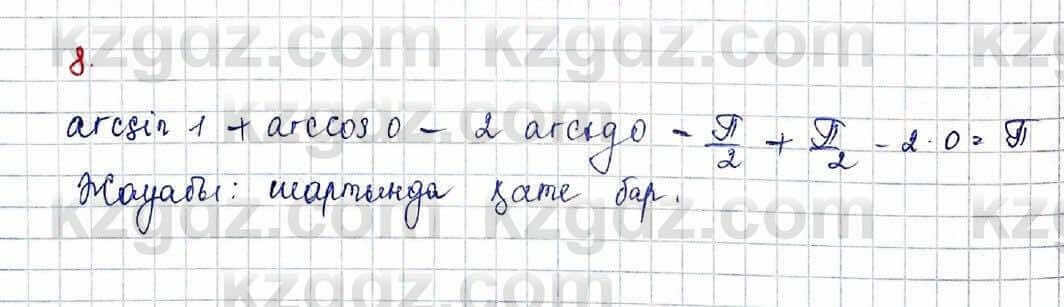 kzgdz.com kzgdz.com kz
8.
arcsin 1 + arccos 0 - 2 arctg 0 - π/2 + π/2 - 2·0 = π
Жауабы: шартында қате бар.
kzgdz.com kzgdz.com kz
kzgdz.com kzgdz.com